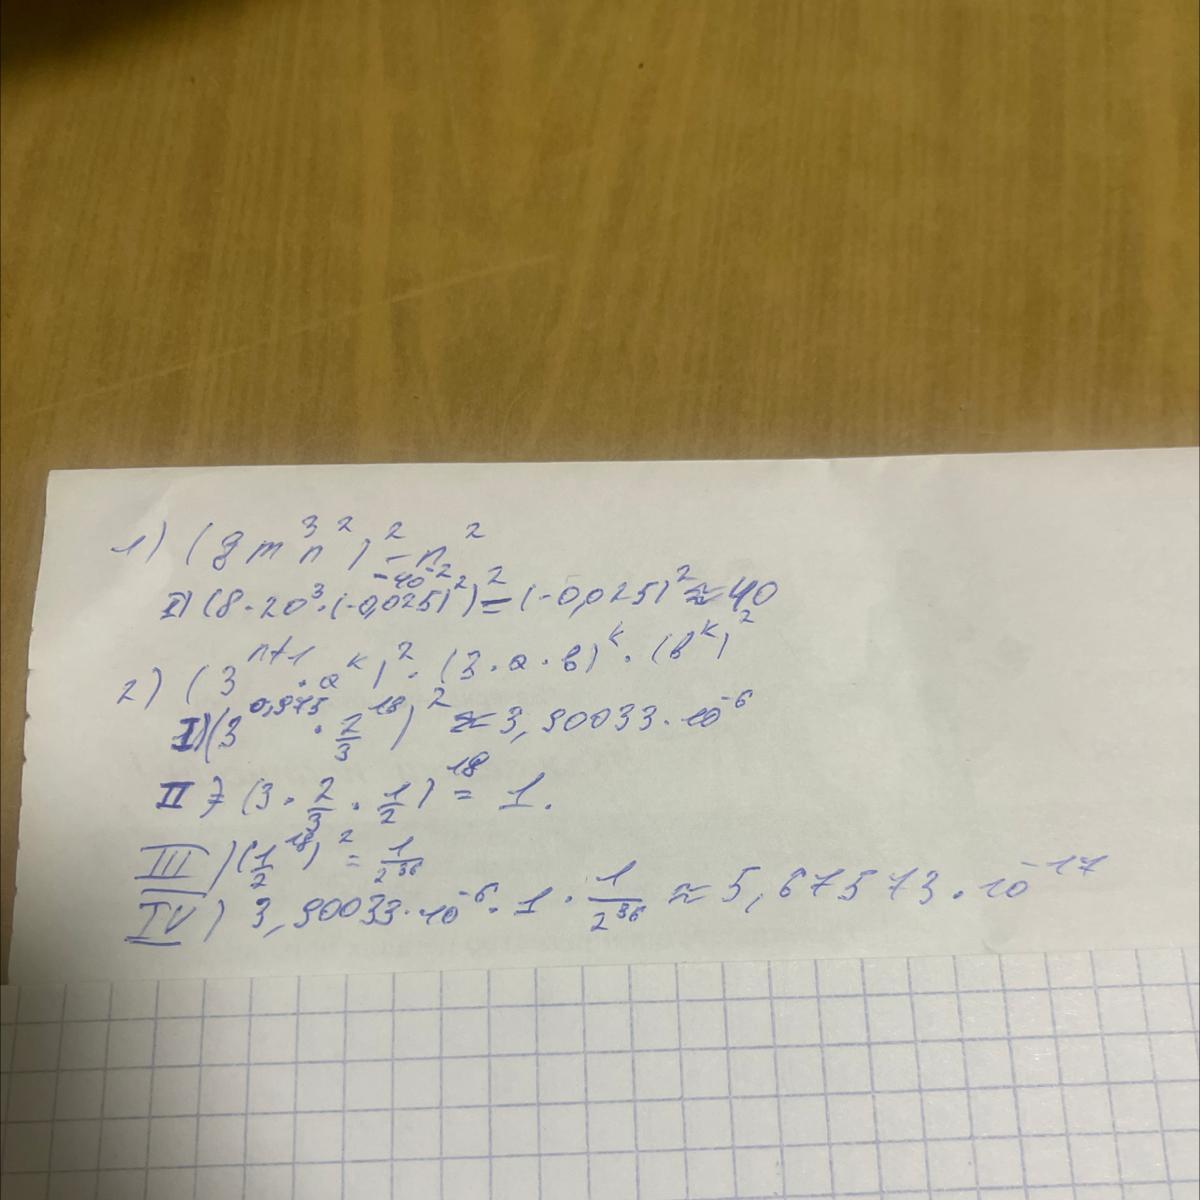 1) (8 m³ n²)² - n²
I) (8·20³·(-0,025)²)² = (-0,025)² ≈ 40
-40⁻²
2) (3ⁿ⁺¹·aᵏ)²·(3·a·b)ᵏ·(bᵏ)²
I) (3^0,975 · 2/3^18)² ≈ 3,90033·10⁻⁶
II) (3·2/3·1/2)¹⁸ = 1.
III) (1/2^18)² = 1/2³⁶
IV) 3,90033·10⁻⁶·1·1/2³⁶ ≈ 5,67573·10⁻¹⁷